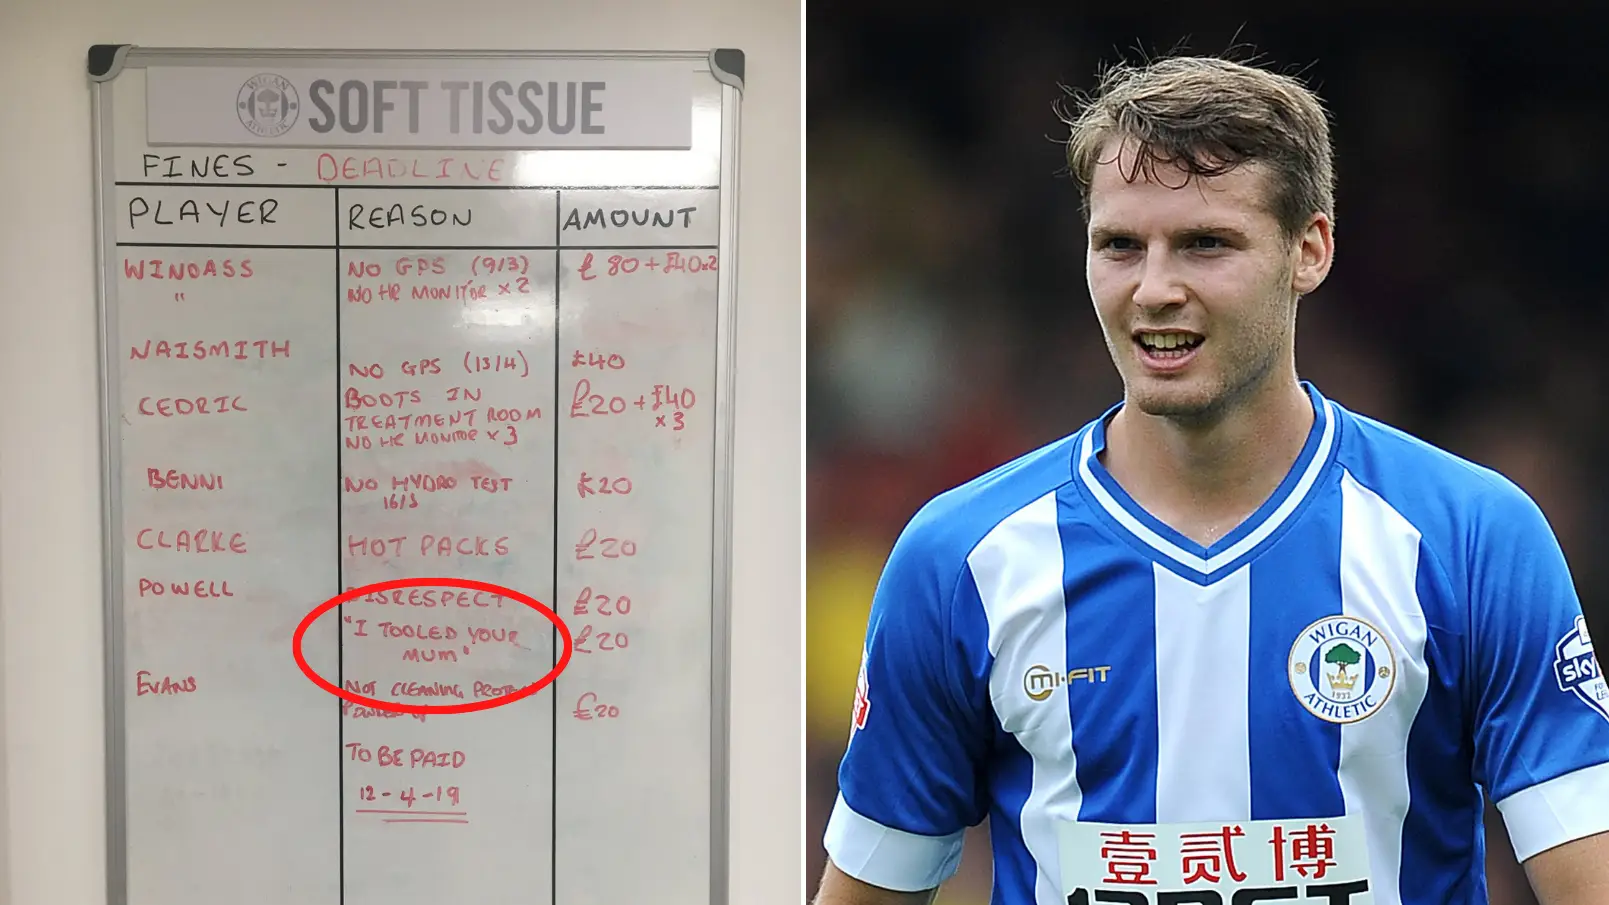 WIGAN
ATHLETIC
SOFT TISSUE
FINES - DEADLINE
PLAYER REASON AMOUNT
WINDASS NO GPS (9/3) £80+£40x2
" NO HR MONITOR x2
NAISMITH NO GPS (13/4) £40
CEDRIC BOOTS IN £20+£40
TREATMENT ROOM x3
NO HR MONITOR x3
BENNI NO HYDRO TEST £20
16/3
CLARKE HOT PACKS £20
POWELL DISRESPECT £20
"I TOOLED YOUR £20
MUM"
EVANS NOT CLEANING PROTEIN
£20
TO BE PAID
12-4-19
WIGAN
1932
ATHLETIC
Mi-FIT
sky
壹贰博
12BET